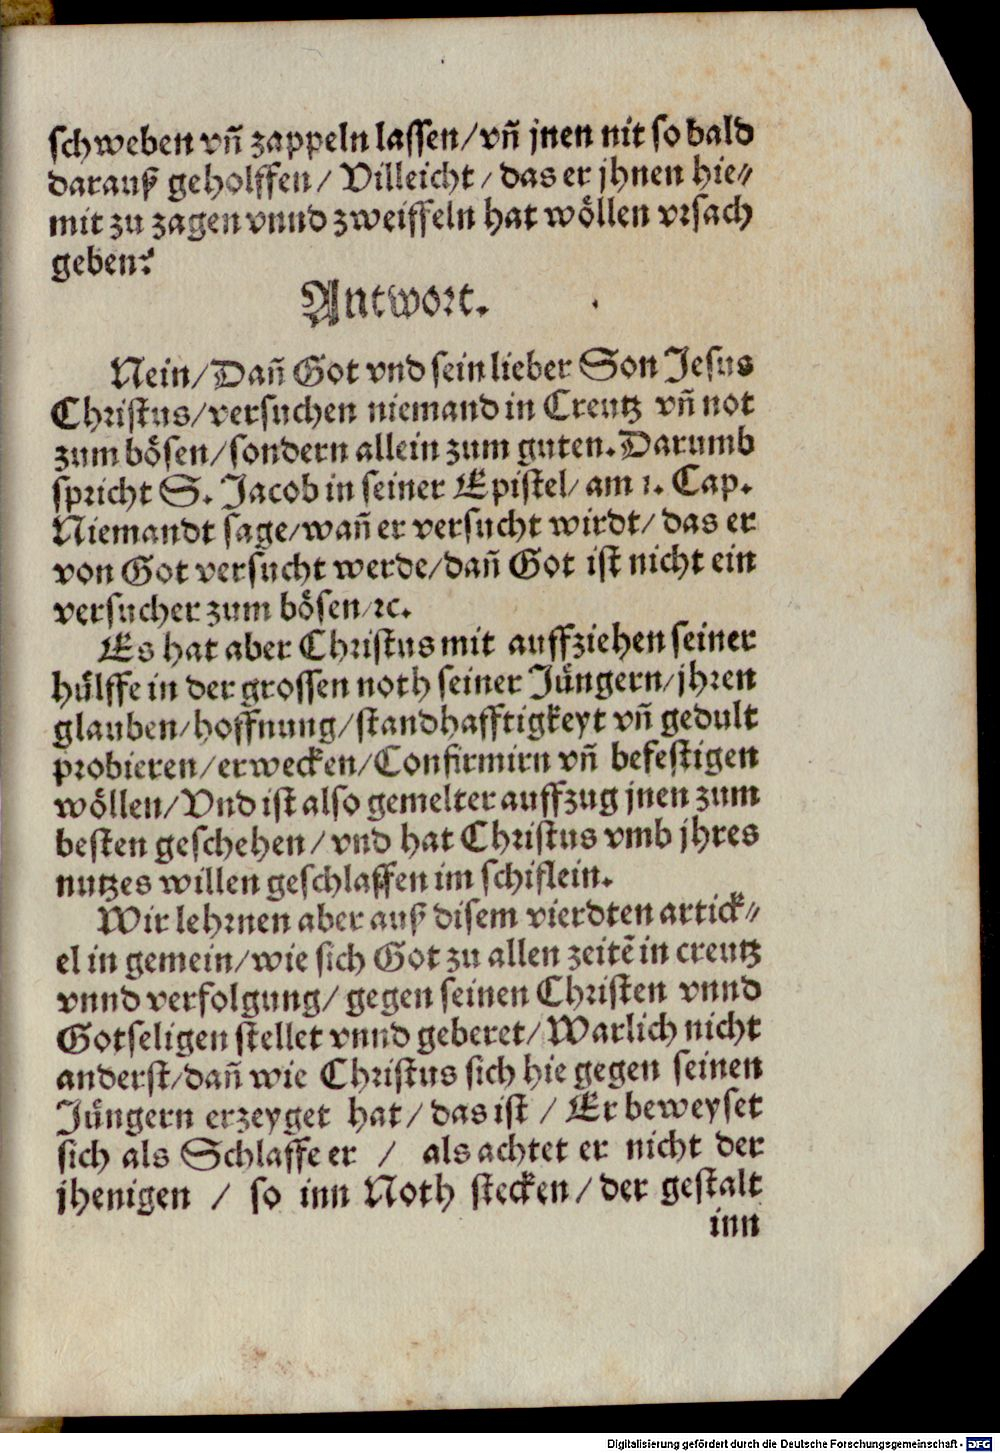 schweben vñ zappeln lassen/vñ jnen nit so bald
darauß geholffen/ Villeicht/das er jhnen hie⸗
mit zu zagen vnnd zweiffeln hat wöllen vrsach
geben?
Antwort.
Nein/Dañ Got vnd sein lieber Son Jesus
Christus/versuchen niemand in Creutz vñ not
zum bösen/sondern allein zum guten. Darumb
spricht S. Jacob in seiner Epistel/am 1. Cap.
Niemandt sage/wañ er versucht wirdt/das er
von Got versucht werde/dañ Got ist nicht ein
versucher zum bösen/ꝛc.
Es hat aber Christus mit auffziehen seiner
hülffe in der grossen noth seiner Jüngern/jhren
glauben/hoffnung/standhafftigkeyt vñ gedult
probieren/erwecken/Confirmirn vñ befestigen
wöllen/Vnd ist also gemelter auffzug jnen zum
besten geschehen/vnd hat Christus vmb jhres
nutzes willen geschlaffen im schiflein.
Wir lehrnen aber auß disem vierdten artick⸗
el in gemein/wie sich Got zu allen zeitē in creutz
vnnd verfolgung/gegen seinen Christen vnnd
Gotseligen stellet vnnd geberet/Warlich nicht
anderst/dañ wie Christus sich hie gegen seinen
Jüngern erzeyget hat/das ist/Er beweyset
sich als Schlaffe er / als achtet er nicht der
jhenigen / so inn Noth stecken/der gestalt
inn
Digitalisierung gefördert durch die Deutsche Forschungsgemeinschaft - DFG